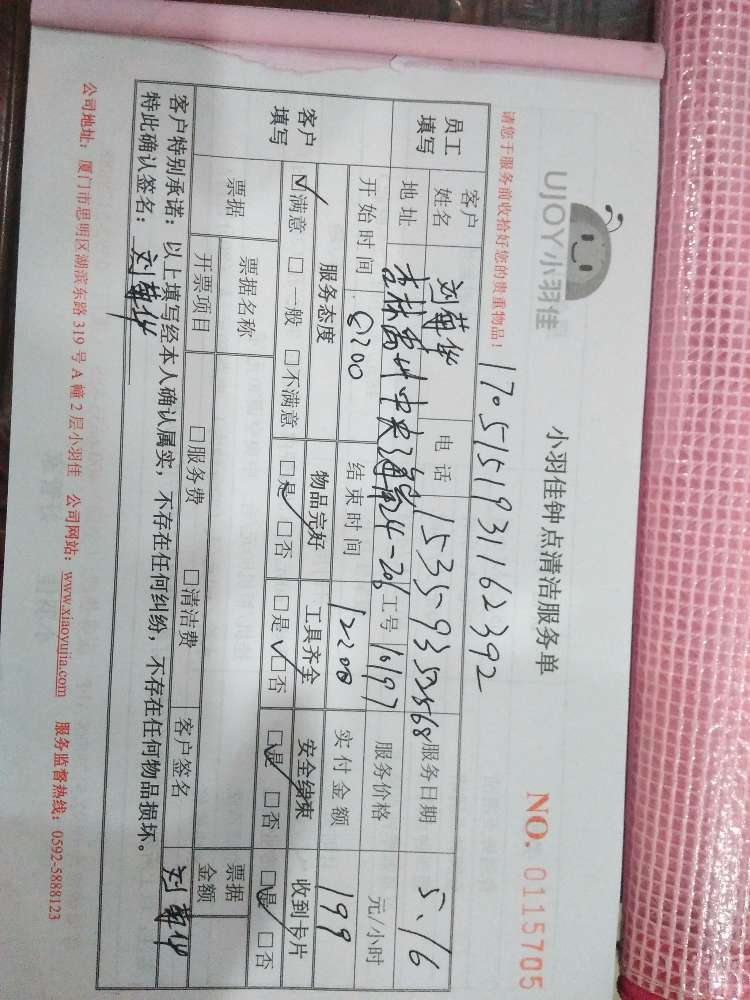 UJOY小羽佳
小羽佳钟点清洁服务单
NO. 0115705
请您于服务前收拾好您的贵重物品！
1705151931162392
员工填写
客户姓名 刘菊华 电话 15359352568 服务日期 5.16
地址 中央海岸24-206 工号 10197 服务价格 元/小时
开始时间 8:00 结束时间 12:00 实付金额 199
客户填写
服务态度 物品完好 工具齐全 安全结束 收到卡片
☑满意 □一般 □不满意 ☑是 □否 □是 ☑否 ☑是 □否 ☑是 □否
票据 票据名称 票据金额
开票项目 □服务费 □清洁费 客户签名 刘菊华
客户特别承诺：以上填写经本人确认属实，不存在任何纠纷，不存在任何物品损坏。
特此确认签名：刘菊华
公司地址：厦门市思明区湖滨东路 319 号 A 幢 2 层小羽佳 公司网站：www.xiaoyujia.com 服务监督热线：0592-5888123